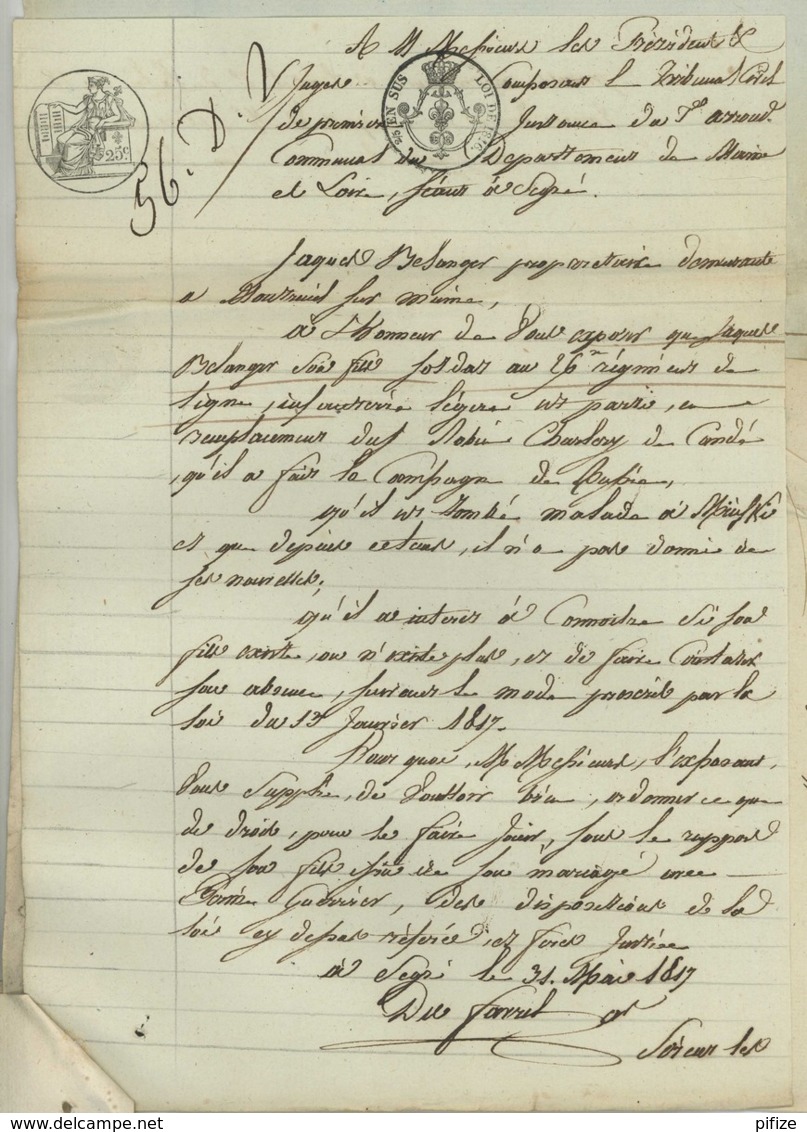 A M Messieurs les Président &
Juges Composant le Tribunal Civil
de première Instance du arrond.
Communal du Département de Maine
et Loire, séant à Segré.
56. D. 
25c
2/5 EN SUS LOI DE 1816
Jaques Belanger propriétaire demeurant
a Montreuil sur maine,
à l'honneur de Vous exposer que Jaques
Belanger son fils soldat au 26 régiment de
ligne, infanterie légère est parti, en
remplacement du Robin Charlery de Candé
, qu'il a fait la Campagne de Russie,
qu'il est tombé malade à Minski
et que depuis cetems, il n'a pas donné de
ses nouvelles,
qu'il a interet à Connoitre si son
fils existe, ou n'existe plus, et de faire Constater
son absence, suivant le mode prescrit par la
loi du 13 Janvier 1817.
Pour quoi, M Messieurs, l'exposant,
Vous supplie, de Vouloir bien, ordonner ce que
de droit, pour le faire Jouir, sous le rapport
de son fils issu de son mariage avec
Guerrier, des dispositions de la
loi cy dessus référée, et ferez Justice
à Segré le 31. Mai 1817
Soient les
pifize